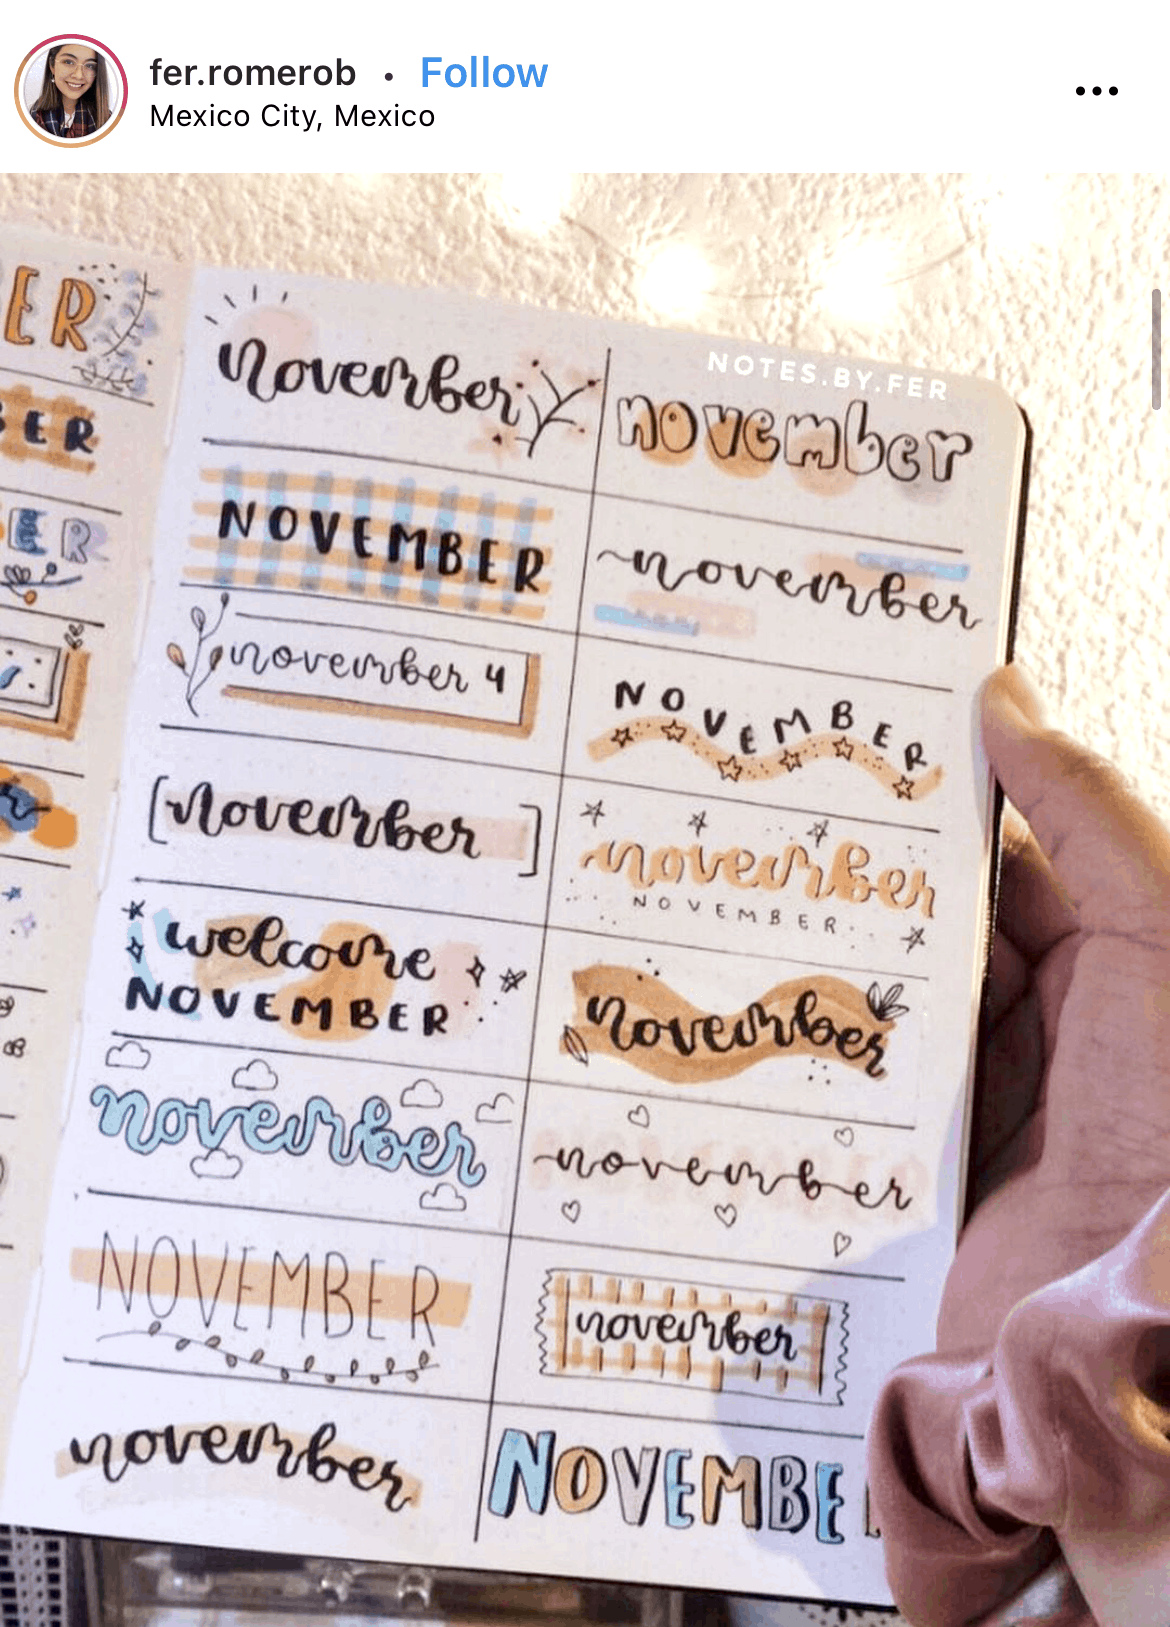 fer.romerob • Follow
Mexico City, Mexico
NOTES.BY.FER
ER
BER
ER
november
november
NOVEMBER
november
november 4
NOVEMBER
[november]
november
NOVEMBER
welcome
NOVEMBER
november
november
november
NOVEMBER
november
november
NOVEMBE